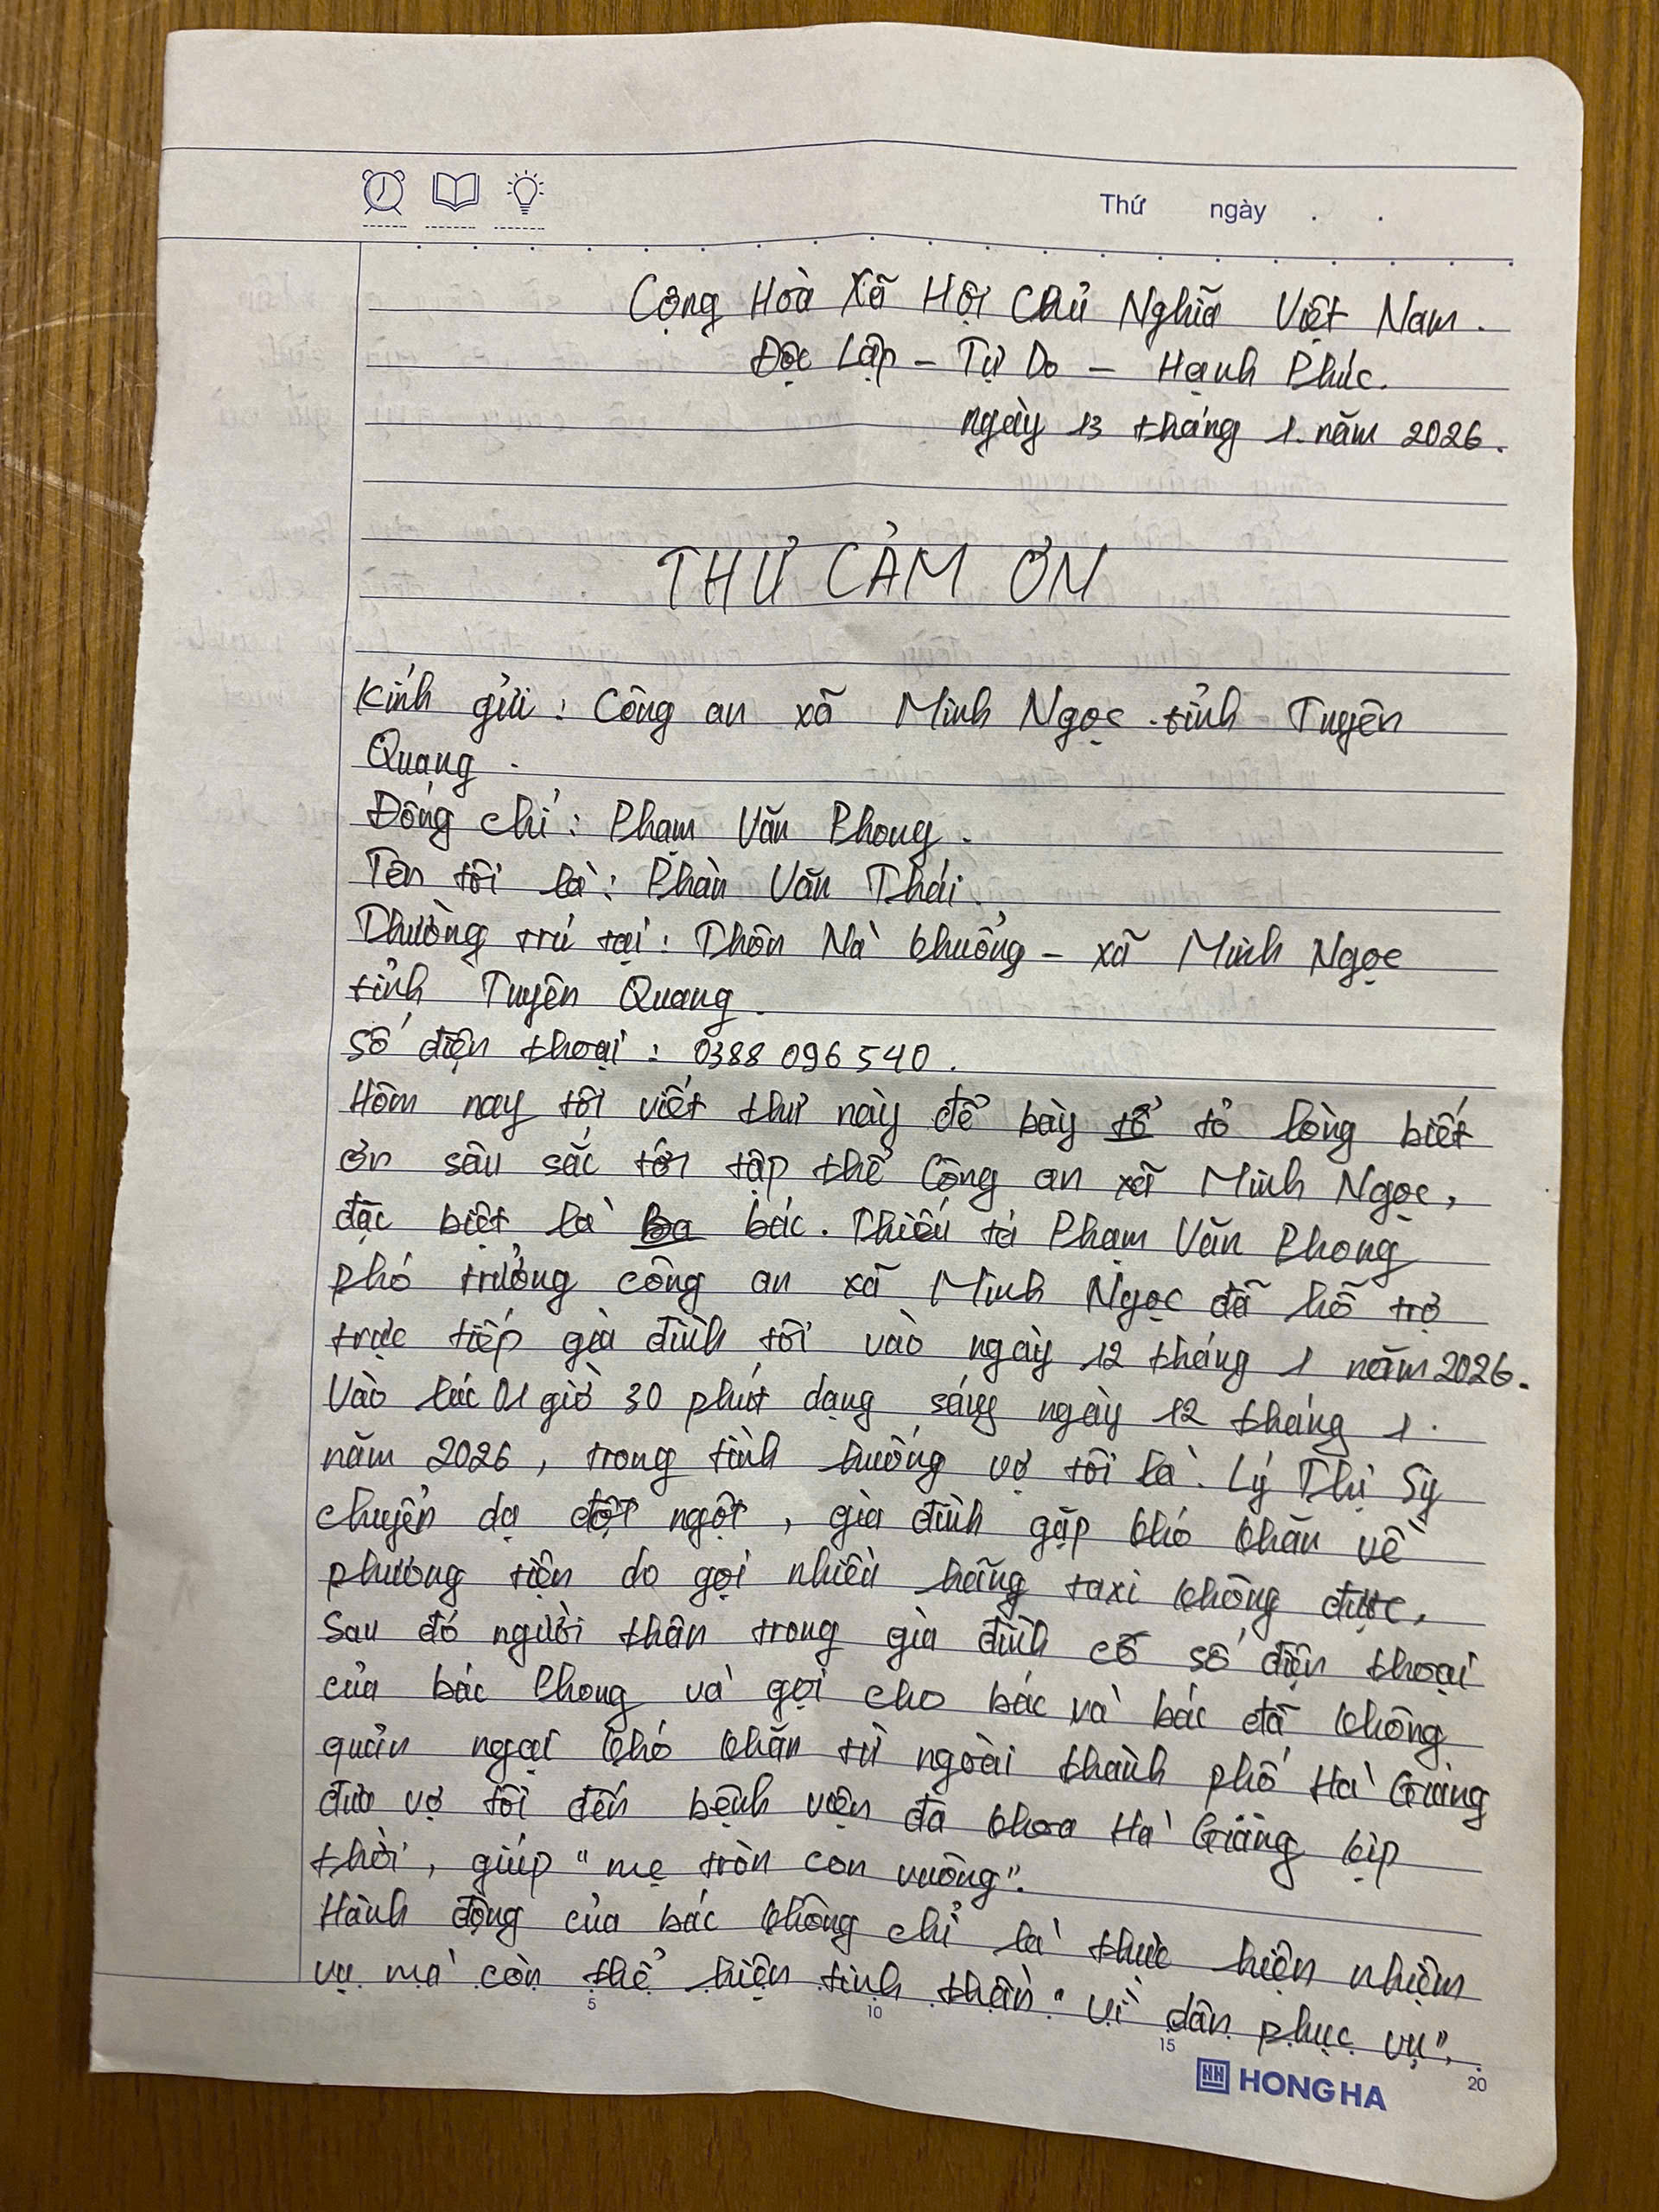 Thứ ngày . .
Cộng Hòa Xã Hội Chủ Nghĩa Việt Nam.
Độc Lập - Tự Do - Hạnh Phúc.
ngày 13 tháng 1. năm 2026.
THƯ CẢM ƠN
Kính gửi : Công an xã Minh Ngọc. tỉnh Tuyên
Quang.
Đồng chí : Phạm Văn Phong.
Tên tôi là : Phàn Văn Thái.
Thường trú tại : Thôn Nà Khuổng - xã Minh Ngọc
tỉnh Tuyên Quang.
Số điện thoại : 0388 096 540.
Hôm nay tôi viết thư này để bày tỏ lòng biết
ơn sâu sắc tới tập thể Công an xã Minh Ngọc,
đặc biệt là bác. Thiếu tá Phạm Văn Phong
phó trưởng công an xã Minh Ngọc đã hỗ trợ
trực tiếp gia đình tôi vào ngày 12 tháng 1 năm 2026.
Vào lúc 01 giờ 30 phút dạng sáng ngày 12 tháng 1.
năm 2026, trong tình huống vợ tôi là. Lý Thị Sỳ
chuyển dạ đột ngột, gia đình gặp khó khăn về
phương tiện do gọi nhiều hãng taxi không được,
Sau đó người thân trong gia đình có số điện thoại
của bác Phong và gọi cho bác và bác đã không
quản ngại khó khăn từ ngoài thành phố Hà Giang
đưa vợ tôi đến bệnh viện đa khoa Hà Giang kịp
thời, giúp "mẹ tròn con vuông".
Hành động của bác không chỉ là thực hiện nhiệm
vụ mà còn thể hiện tinh thần "vì dân phục vụ",
5 10 15 20
HONG HA